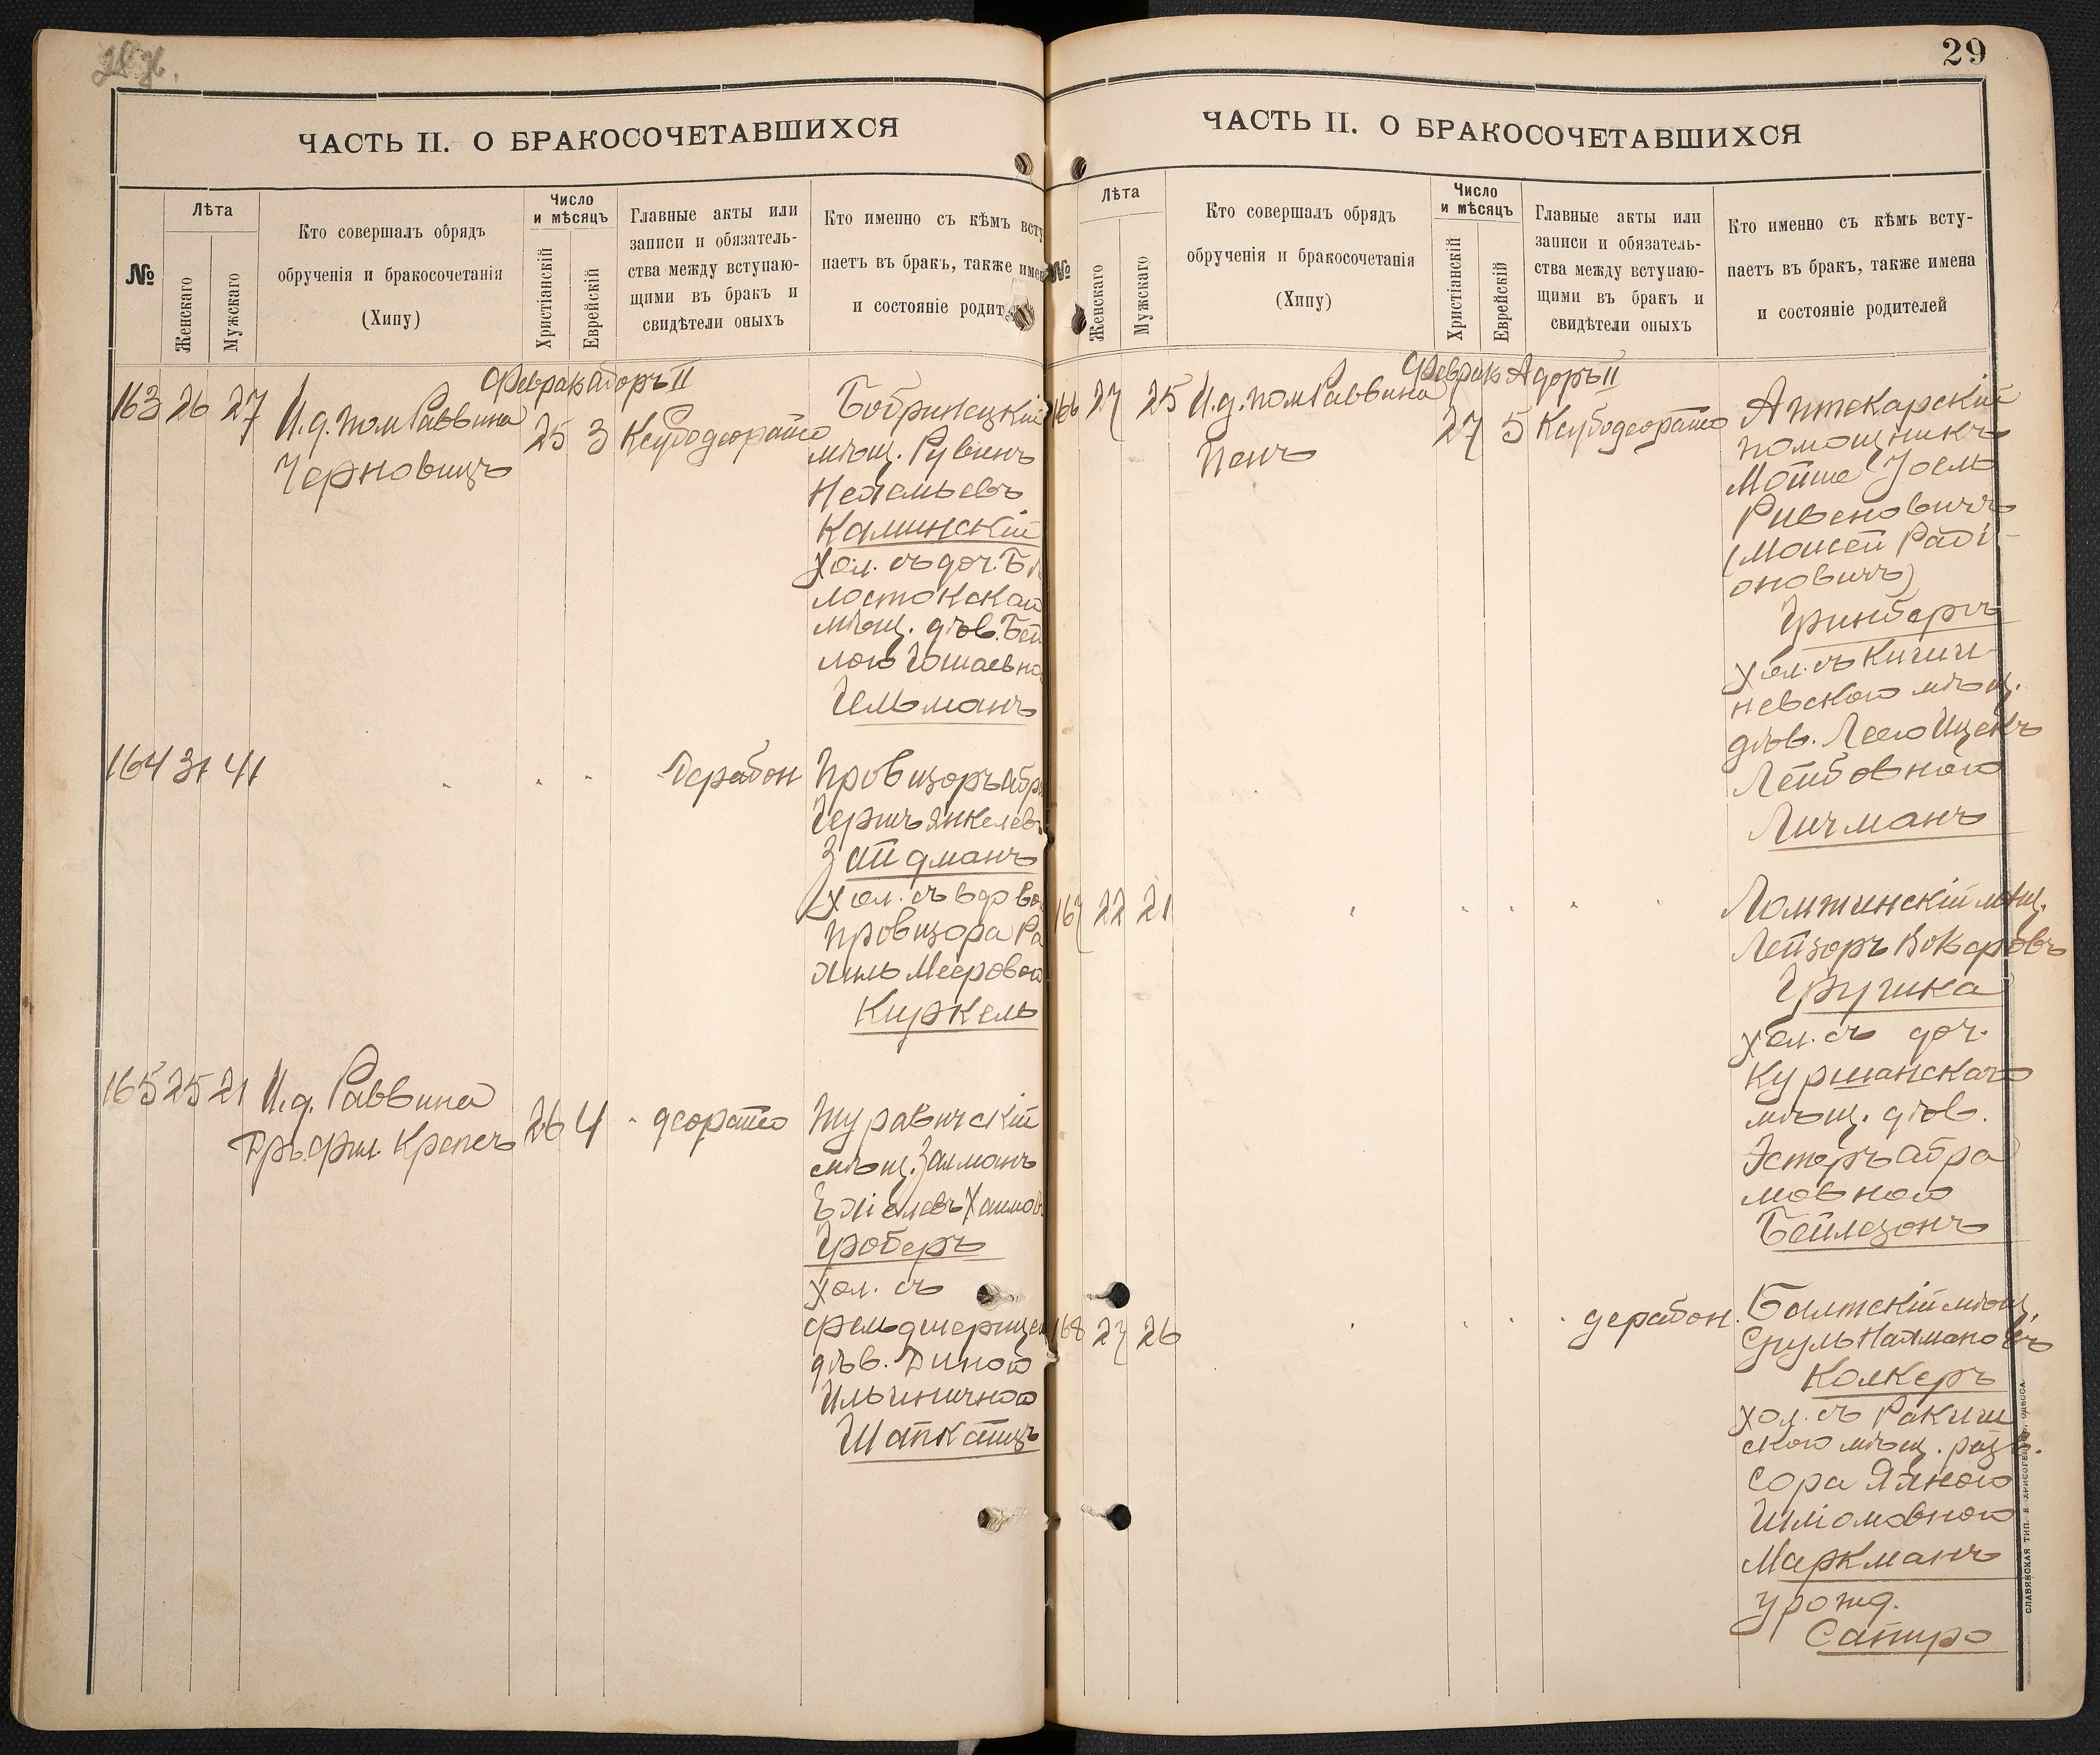 29
ЧАСТЬ II. О БРАКОСОЧЕТАВШИХСЯ
№
Лѣта
Женскаго
Мужскаго
Кто совершалъ обрядъ
обрученія и бракосочетанія
(Хипу)
Число
и мѣсяцъ
Христіанскій
Еврейскій
Главные акты или
записи и обязатель-
ства между вступаю-
щими въ бракъ и
свидѣтели оныхъ
Кто именно съ кѣмъ всту
паетъ въ бракъ, также имен
и состояніе родит
Феврал Адоръ II
163 26 27 И.д. пом Раввина
Черновицъ
25 3 Ксубодеорайсо
Бобринецкій
мѣщ. Рувинъ
Калинскій
хол. съ доч. Бѣ
лостокскаго
мѣщ. дѣв. Бей
лою
Гельманъ
164 31 41
Дерабон
Провизоръ Абра
Гершъ Янкелевъ
Зайдманъ
хол. съ вдово
провизора Ра
хиль Мееровой
Киржель
165 25 21 И.д. Раввина
Д-ръ фил. Крепсъ
26 4
деорайсо
Журавичскій
мѣщ. Залманъ
Ехіелевъ Хаимов
Гроберъ
хол. съ
фельдшерицею
дѣв. Диной
Ильиничной
Шапкайцъ
ЧАСТЬ II. О БРАКОСОЧЕТАВШИХСЯ
№
Лѣта
Женскаго
Мужскаго
Кто совершалъ обрядъ
обрученія и бракосочетанія
(Хипу)
Число
и мѣсяцъ
Христіанскій
Еврейскій
Главные акты или
записи и обязатель-
ства между вступаю-
щими въ бракъ и
свидѣтели оныхъ
Кто именно съ кѣмъ всту-
паетъ въ бракъ, также имена
и состояніе родителей
Феврал Адоръ II
166 27 25 И.д. пом Раввина
Пенъ
27 5 Ксубодеорайсо
Аптекарскій
помощникъ
Мойше Іоель
Рувеновичъ
(Моисей Раді-
оновичъ)
Гринбергъ
хол. съ Киши-
невскою мѣщ.
дѣв. Леею
Лейбовною
Личманъ
167 22 21
Ломжинскій мѣщ.
Лейзоръ
Гручка
хол. съ доч.
Куршанскаго
мѣщ. дѣв.
Эстеръ Абра
мовною
Бейлезонъ
168 27 26
дерабон.
Балтскій мѣщ.
Сруль Наймановъ
Колкеръ
хол. съ Ракиш
скою мѣщ. разв.
Сора
Маркманъ
урожд.
Сапиро
СЛАВЯНСКАЯ ТИП. Е. ХРИСОГЕЛОСЪ, ОДЕССА.